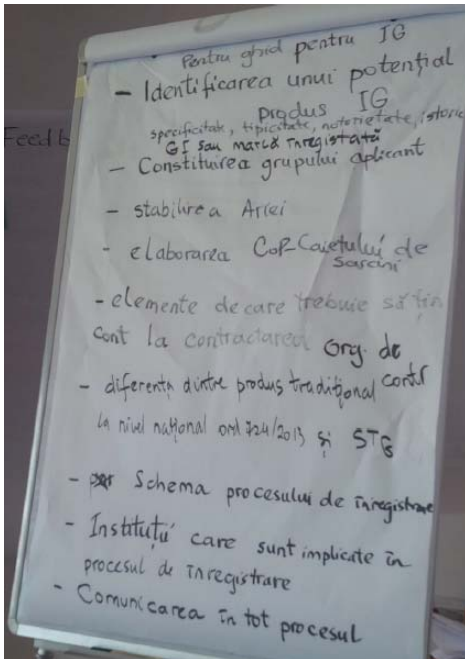 Feedb
Pentru ghid pentru IG
- Identificarea unui potențial
produs IG
specificitate, tipicitate, notorietate, istoric
GI sau marcă înregistată
- Constituirea grupului aplicant
- stabilirea Ariei
- elaborarea CoP-Caietului de
Sarcini
- elemente de care trebuie să țin
cont la contractarea org. de
control
- diferența dintre produs tradițional
la nivel național ord 724/2013 și STG
- Schema procesului de înregistrare
- Instituții care sunt implicate în
procesul de înregistrare
- Comunicarea în tot procesul